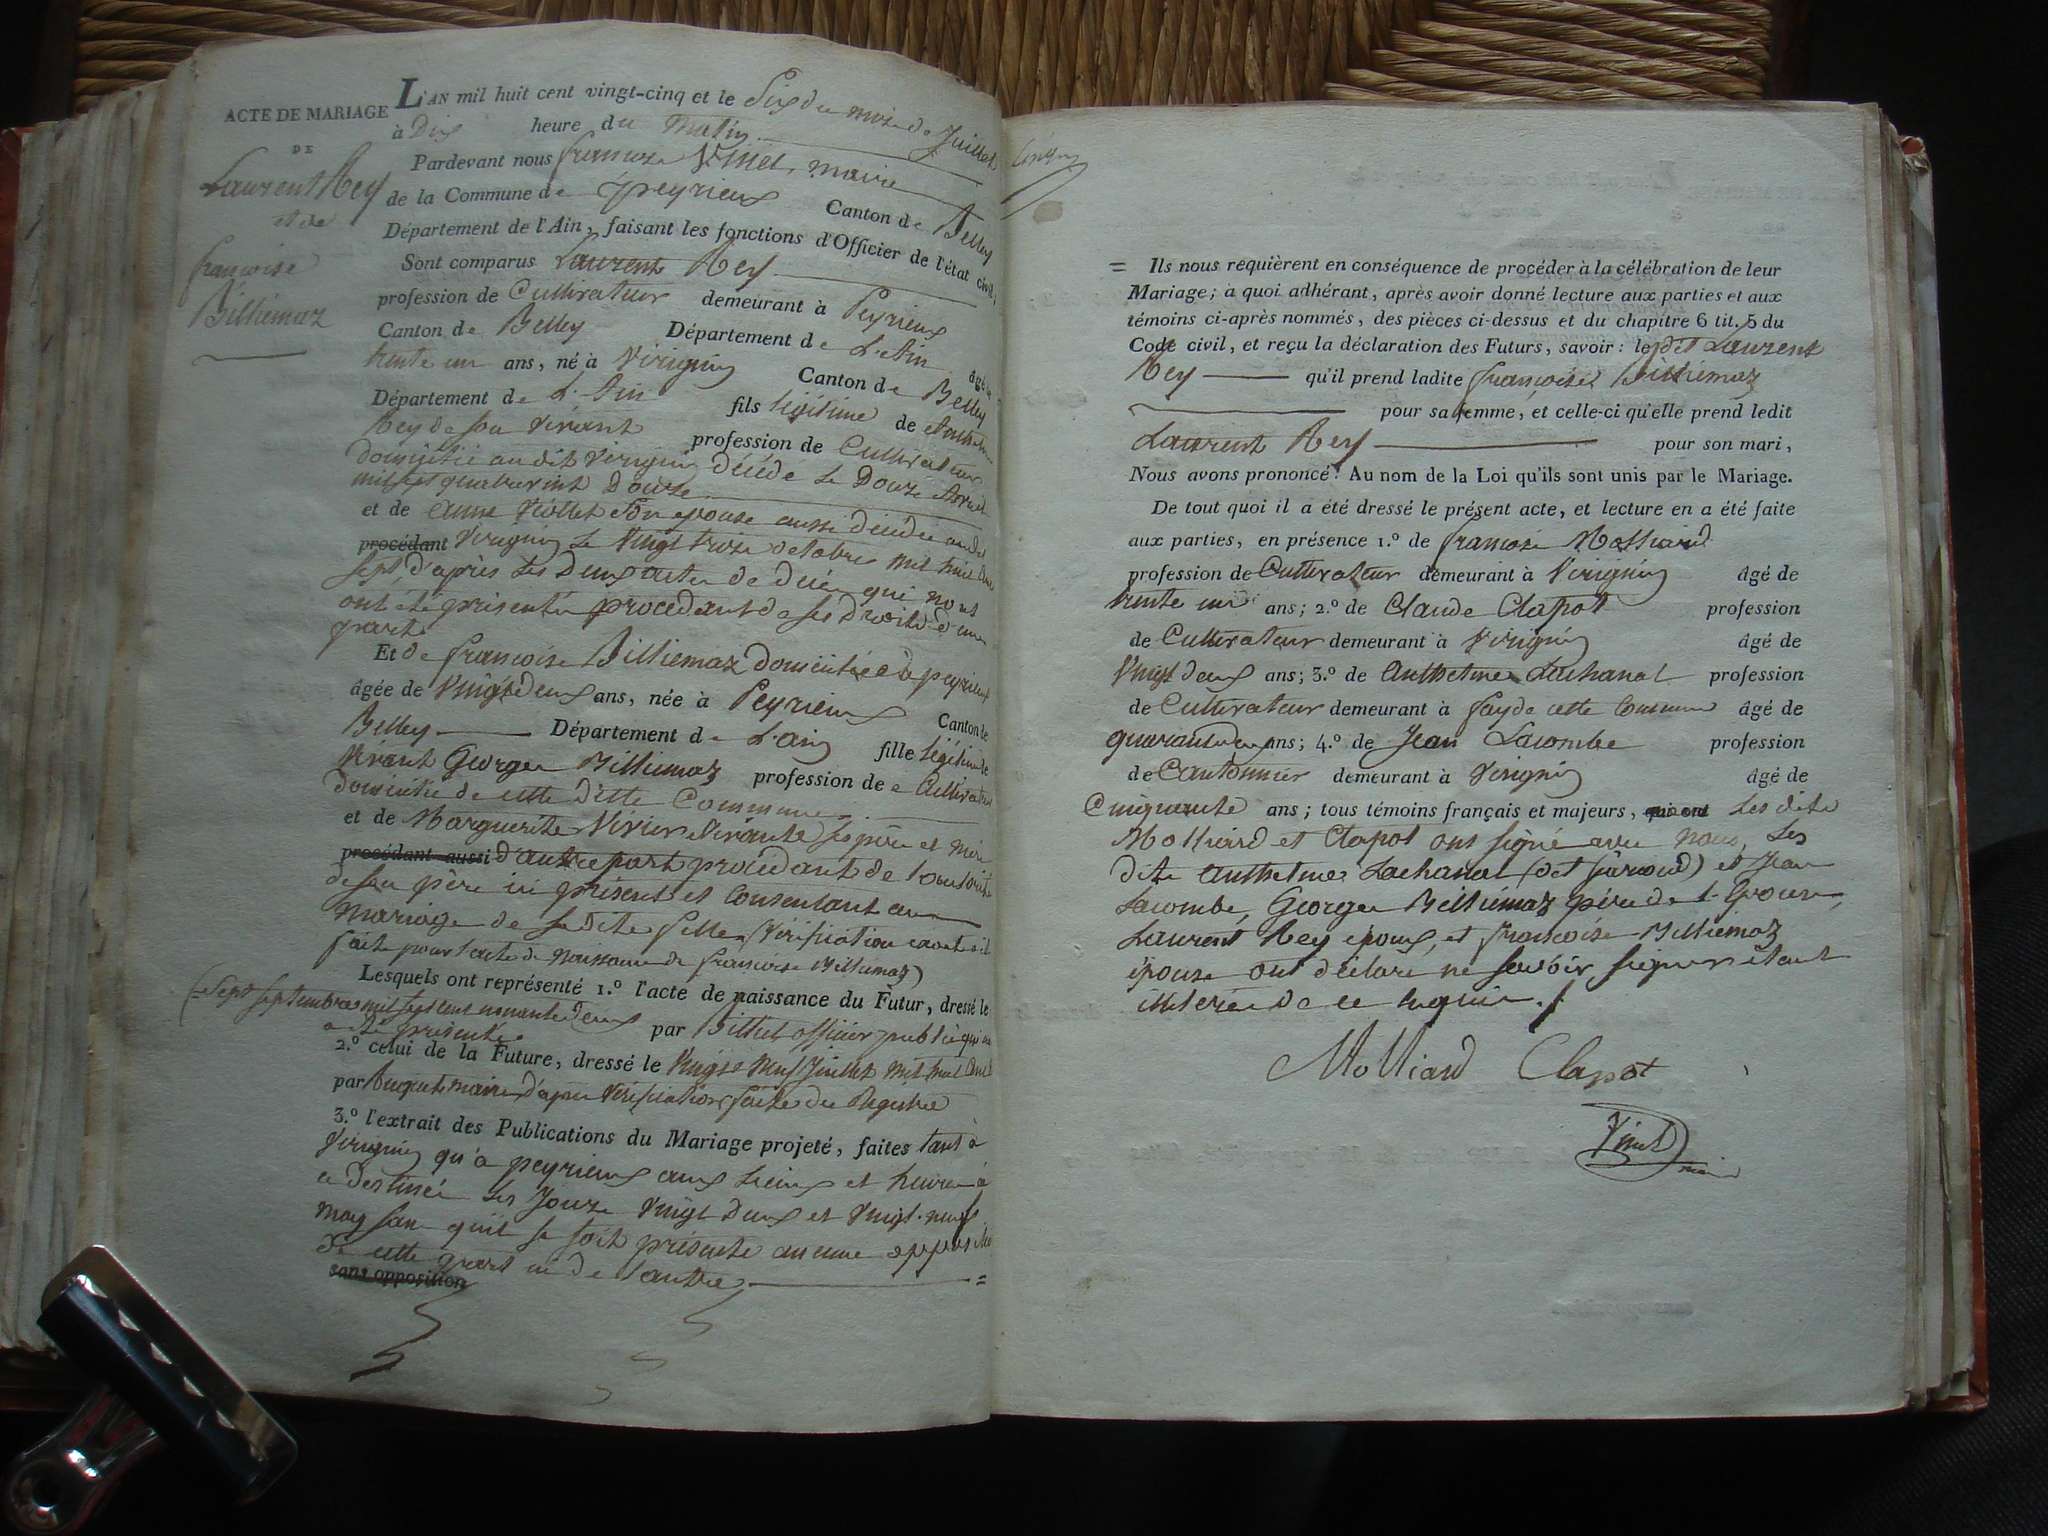 ACTE DE MARIAGE
DE
Laurent Rey
et de
françoise
Billiemaz
L'AN mil huit cent vingt-cinq et le Six du mois de Juillet
à Dix heure du Matin
Pardevant nous françois Vinet, maire
de la Commune de peyrieux Canton de Belley
Département de l'Ain, faisant les fonctions d'Officier de l'état civil,
Sont comparus Laurent Rey
profession de Cultivateur demeurant à Peyrieux
Canton de Belley Département de L'Ain âgé de
trente un ans, né à Virignin Canton de Belley
Département de L'Ain fils légitime de Anthelme
Rey de son vivant profession de Cultivateur
domicilié au dit Virignin décédé le Douze Avril
mil sept quatrevint Douze
et de Anne Viollet son epouse aussi décédée au dit
procédant Virignin le Vingt trois octobre mil huit Cent
sept, d'après les Deux actes de décès qui nous
ont été présentés procédant de ses droits d'une
part
Et de françoise Billiemaz domiciliée à peyrieux
âgée de Vingt deux ans, née à Peyrieux Canton de
Belley Département de L'ain fille légitime de
vivant George Billiemaz profession de Cultivateur
domicilié de cette ditte Commune
et de Marguerite Vivier vivante ses père et mère
procédant aussi d'autre part procédant de l'autorité
de son père ici présent et Consentant au
mariage de sa dite fille (Vérification ayant été
faite pour l'acte de naissance de françoise Billiemaz)
Lesquels ont représenté 1.º l'acte de naissance du Futur, dressé le
Sept septembre mil sept cent nonante Deux par Billiet officier public qui
a été présenté
2.º celui de la Future, dressé le Vingt neuf Juillet mil huit Cent
par maire d'après vérification faite du Registre
3.º l'extrait des Publications du Mariage projeté, faites tant à
Virignin qu'à peyrieux aux lieux et heures à
ce destinés les Jours Vingt Deux et Vingt-neuf
may sans qu'il se soit présenté aucune opposition
de cette part ni de l'autre =
sans opposition
= Ils nous requièrent en conséquence de procéder à la célébration de leur
Mariage; à quoi adhérant, après avoir donné lecture aux parties et aux
témoins ci-après nommés, des pièces ci-dessus et du chapitre 6 tit. 5 du
Code civil, et reçu la déclaration des Futurs, savoir: le dit Laurent
Rey qu'il prend ladite françoise Billiemaz
pour sa femme, et celle-ci qu'elle prend ledit
Laurent Rey pour son mari,
Nous avons prononcé: Au nom de la Loi qu'ils sont unis par le Mariage.
De tout quoi il a été dressé le présent acte, et lecture en a été faite
aux parties, en présence 1.º de françois Molliard
profession de Cultivateur demeurant à Virignin âgé de
trente un ans; 2.º de Claude Clapot profession
de Cultivateur demeurant à Virignin âgé de
Vingt deux ans; 3.º de Anthelme Lachanal profession
de Cultivateur demeurant à fay de cette Commune âgé de
quarante deux ans; 4.º de Jean Lacombe profession
de Cantonnier demeurant à Virignin âgé de
Cinquante ans; tous témoins français et majeurs, qui ont Les dits
Molliard et Clapot ont signé avec nous, Les
dits Anthelme Lachanal et Jean
Lacombe, George Billiemaz père de l'Epouse,
Laurent Rey époux, et françoise Billiemaz
épouse ont déclaré ne savoir signer étant
illitérés de ce requis./.
Molliard Clapot
Vinet
maire